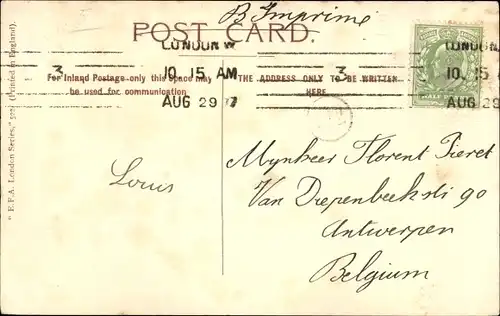 B Imprimé
POST CARD.
LONDON W
3
10.15 AM
AUG 29 7
For Inland Postage only this Space may
be used for communication
THE ADDRESS ONLY TO BE WRITTEN
HERE
3
LONDON W
10.15
AUG 29
HALF PENNY
" F.F.A. London Series," (Printed in England).
Louis
Mynheer Florent Pieret
Van Diepenbeekstr 90
Antwerpen
Belgium